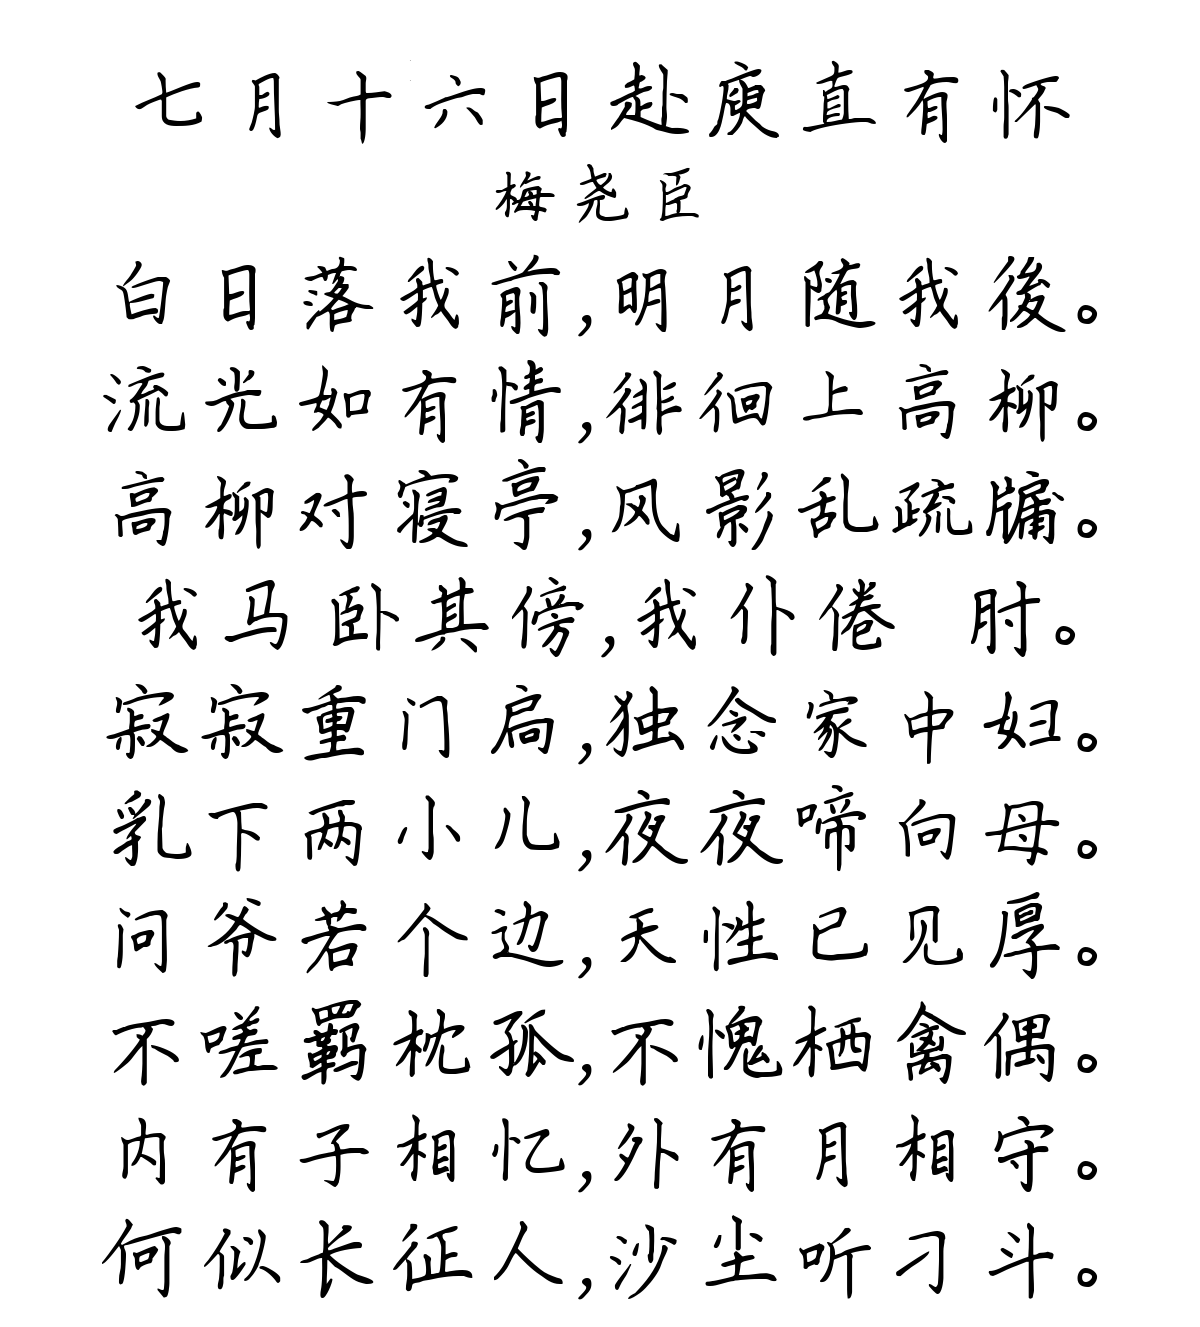 七月十六日赴庾直有怀
梅尧臣
白日落我前,明月随我後。
流光如有情,徘徊上高柳。
高柳对寝亭,风影乱疏牖。
我马卧其傍,我仆倦 肘。
寂寂重门扃,独念家中妇。
乳下两小儿,夜夜啼向母。
问爷若个边,天性已见厚。
不嗟羁枕孤,不愧栖禽偶。
内有子相忆,外有月相守。
何似长征人,沙尘听刁斗。